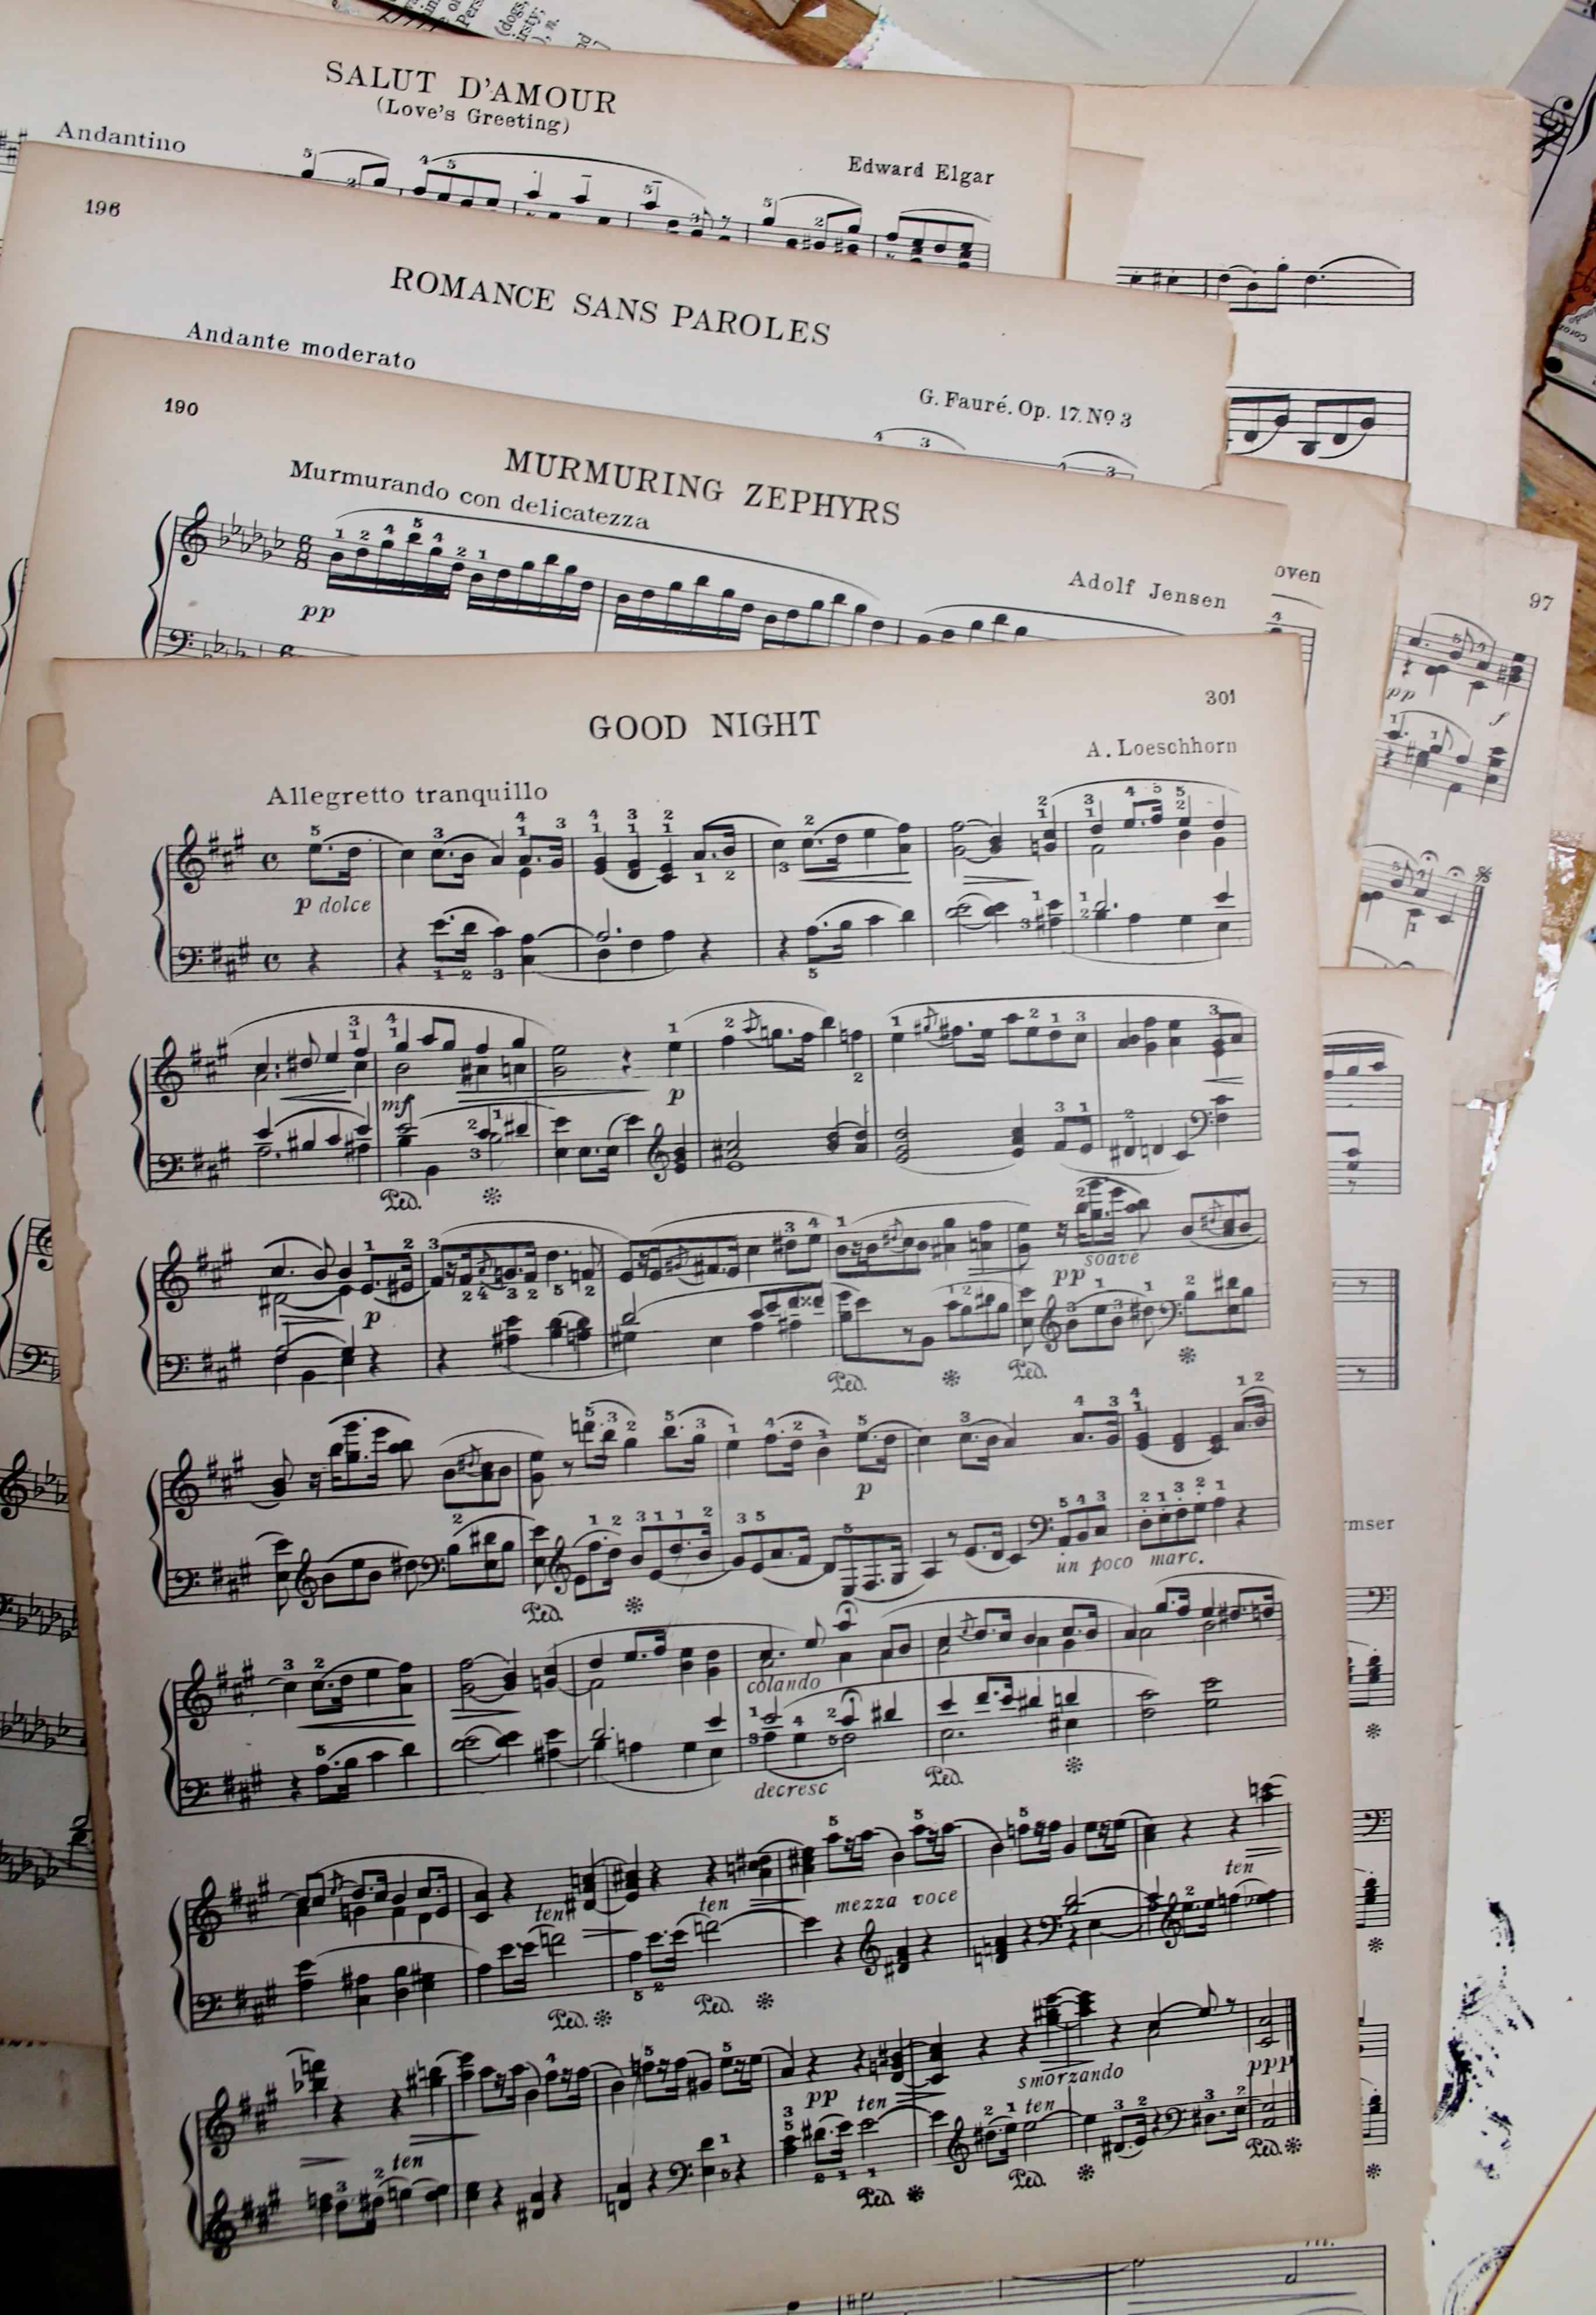 SALUT D'AMOUR
(Love's Greeting)
Andantino
Edward Elgar
196
ROMANCE SANS PAROLES
Andante moderato
G. Fauré. Op. 17. Nº 3
190
MURMURING ZEPHYRS
Murmurando con delicatezza
Adolf Jensen
pp
oven
97
pp
f
301
GOOD NIGHT
A. Loeschhorn
Allegretto tranquillo
p dolce
mf
p
Ped.
p
pp soave
Ped.
Ped.
p
un poco marc.
Ped.
rmser
colando
decresc
Ped.
ten
ten
mezza voce
ten
Ped.
Ped.
ten
pp
ten
smorzando
ten
ppp
Ped.
Ped.
Ped.